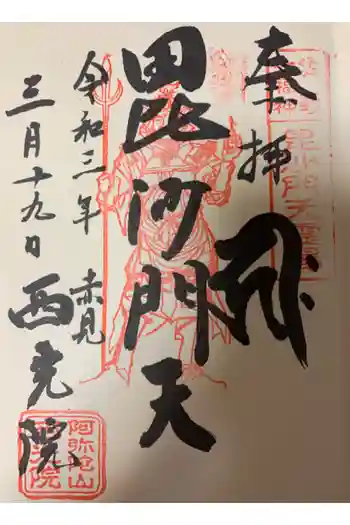 奉拝
毘沙門天
令和三年 赤見
三月十九日 西光院
毘沙門天霊場
阿弥陀山
西光院